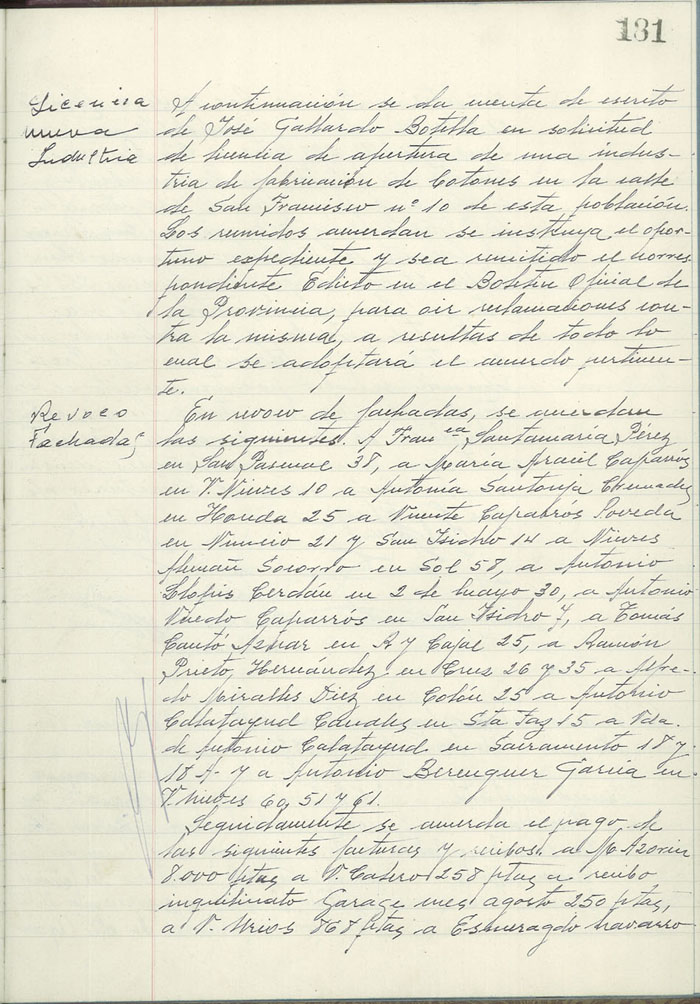 131
Licencia
nueva
Industria
A continuación se da cuenta de escrito
de José Gallardo Botella en solicitud
de licencia de apertura de una indus-
tria de fabricación de botones en la calle
de San Francisco nº 10 de esta población.
Los reunidos acuerdan se instruya el opor-
tuno expediente y sea remitido el corres
pondiente Edicto en el Boletín Oficial de
la Provincia, para oir reclamaciones con-
tra la misma, a resultas de todo lo
cual se adoptará el acuerdo pertinen-
te.
Revoco
Fachadas
En revoco de fachadas, se acuerdan
las siguientes. A Franca Santamaría Pérez
en San Pascual 38, a María Aracil Caparrós
en V. Nieves 10 a Antonia Santonja Cremades
en Honda 25 a Vicente Caparrós Poveda
en Nuncio 21 y San Isidro 14 a Nieves
Alemañ Socorro en Sol 58, a Antonio
Llopis Cerdán en 2 de mayo 30, a Antonio
Caparrós en San Isidro 7, a Tomás
Cantó Aznar en R y Cajal 25, a Ramón
Prieto Hernández en Cruz 26 y 35 a Alfre-
do Miralles Diez en Colón 25 a Antonio
Calatayud Canales en Sta Faz 15 a Vda.
de Antonio Calatayud en Sacramento 18 y
18 A- y a Antonio Berenguer García en
V. Nieves 60, 51 y 61.
Seguidamente se acuerda el pago de
las siguientes facturas y recibos. a M. Azorín
8.000 ptas, a V. Calero 258 ptas, a recibo
inquilinato Garage mes agosto 250 ptas,
a V. Urios 868 ptas, a Esmeragdo Navarro